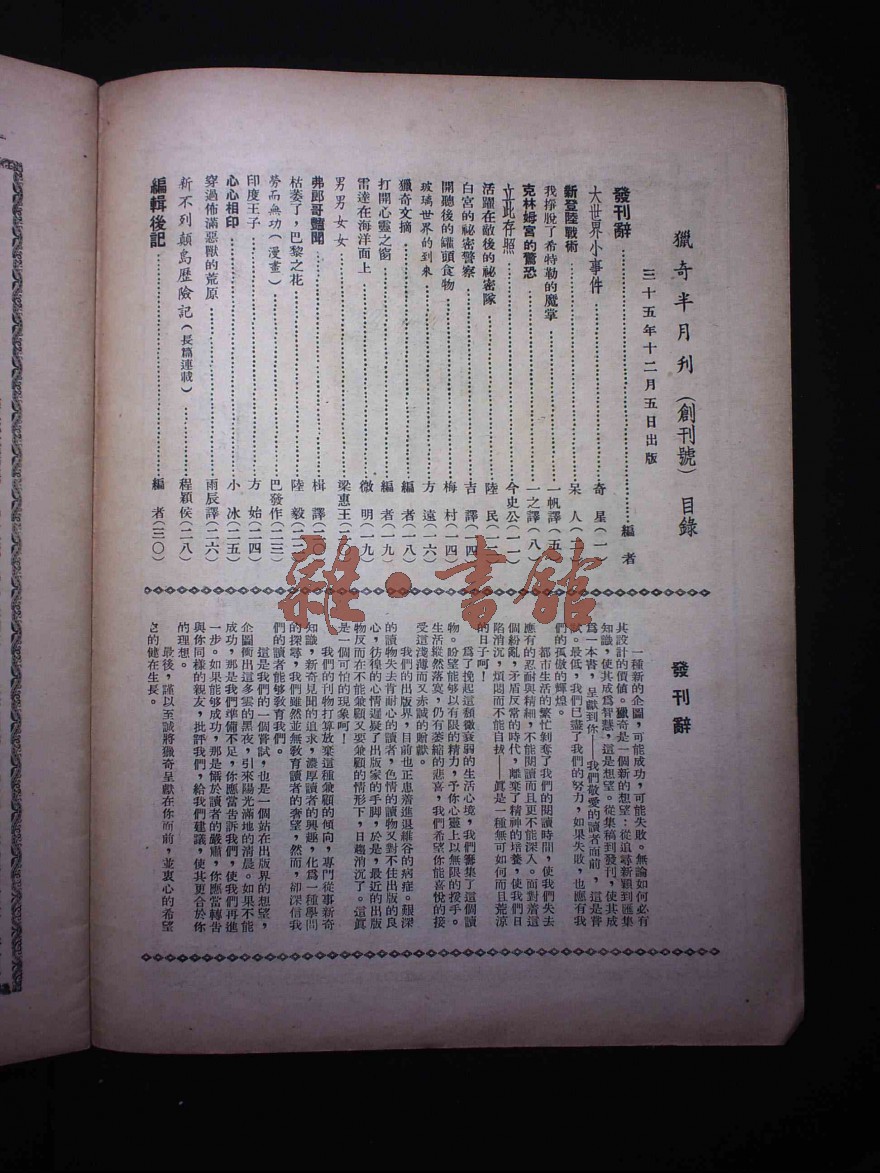 獵奇半月刊（創刊號）目錄
三十五年十二月五日出版
發刊辭……編 者
大世界小事件……奇 星（一）
新登陸戰術……呆 人（二）
我掙脫了希特勒的魔掌……一帆譯（五）
克林姆宮的驚恐……一之譯（八）
立此存照……今史公（一一）
活躍在敵後的祕密隊……陸 民（一三）
白宮的祕密警察……吉 譯（一四）
開聽後的罐頭食物……梅 村（一四）
玻璃世界的到來……方 遠（一六）
獵奇文摘……編 者（一八）
打開心靈之窗……編 者（一九）
雷達在海洋面上……微 明（一九）
男男女女……梁惠王（二〇）
弗郎哥豔聞……楫 譯（二〇）
枯萎了，巴黎之花……陸 毅（二二）
勞而無功（漫畫）……巴發作（二三）
印度王子……方 始（二四）
心心相印……小 冰（二五）
穿過佈滿惡獸的荒原……雨辰譯（二六）
新不列顛島歷險記（長篇連載）……程穎侯（二八）
編輯後記……編 者（三〇）
發刊辭
一種新的企圖，可能成功，可能失敗。無論如何必有
其設計的價値。獵奇是一個新的想望：從追尋新穎到匯集
知識，使其成爲智慧，這是想望。從集稿到發刊，使其成
爲一本書，呈獻到你——我們敬愛的讀者面前，這是嘗
試。最低，我們已盡了我們的努力，如果失敗，也應有我
們的孤傲的輝煌。
都市生活的繁忙剝奪了我們的閱讀時間，使我們失去
應有的忍耐與精細，不能閱讀而且更不能深入。面對着這
個紛亂，矛盾反常的時代，離棄了精神的培養，使我們日
陷消沉，煩悶而不能自拔——眞是一種無可如何而且荒涼
的日子呵！
爲了挽起這頹微衰弱的生活心境，我們籌集了這個讀
物。盼望能够以有限的精力，予你心靈上以無限的援手。
生活縱然落寞，仍有萎縮的悲喜，我們希望你能喜悅的接
受這淺薄而又赤誠的獻獻。
我們的出版界，目前也正患着進退維谷的病症。艱深
的讀物失去肯耐心的讀者，色情的讀物又對不住出版的良
心，彷徨的心情遲疑了出版家的手脚，於是，最近的出版
物反而在不能兼顧又要兼顧的情形下，日趨消沉了。這眞
是一個可怕的現象呵！
我們的刊物打算放棄這種兼顧的傾向，專門從事新奇
知識，新奇見聞的追求，濃厚讀者的興趣，化爲一種學問
的探尋，我們雖然並無敎育讀者的奢望，然而，卻深信我
們的讀者能够敎育我們。
這是我們的一個嘗試，也是一個站在出版界的想望，
企圖衝出這多雲的黑夜，引來陽光滿地的清晨。如果不能
成功，那是我們準備不足，你應當吿訴我們，使我們再進
一步。如果能够成功，那是懾於讀者的嚴肅，你應當轉告
與你同樣的親友，批評我們，給我們建議，使其更合於你
的理想。
最後，謹以至誠將獵奇呈獻在你面前，並衷心的希望
它的健在生長。
雜·書館